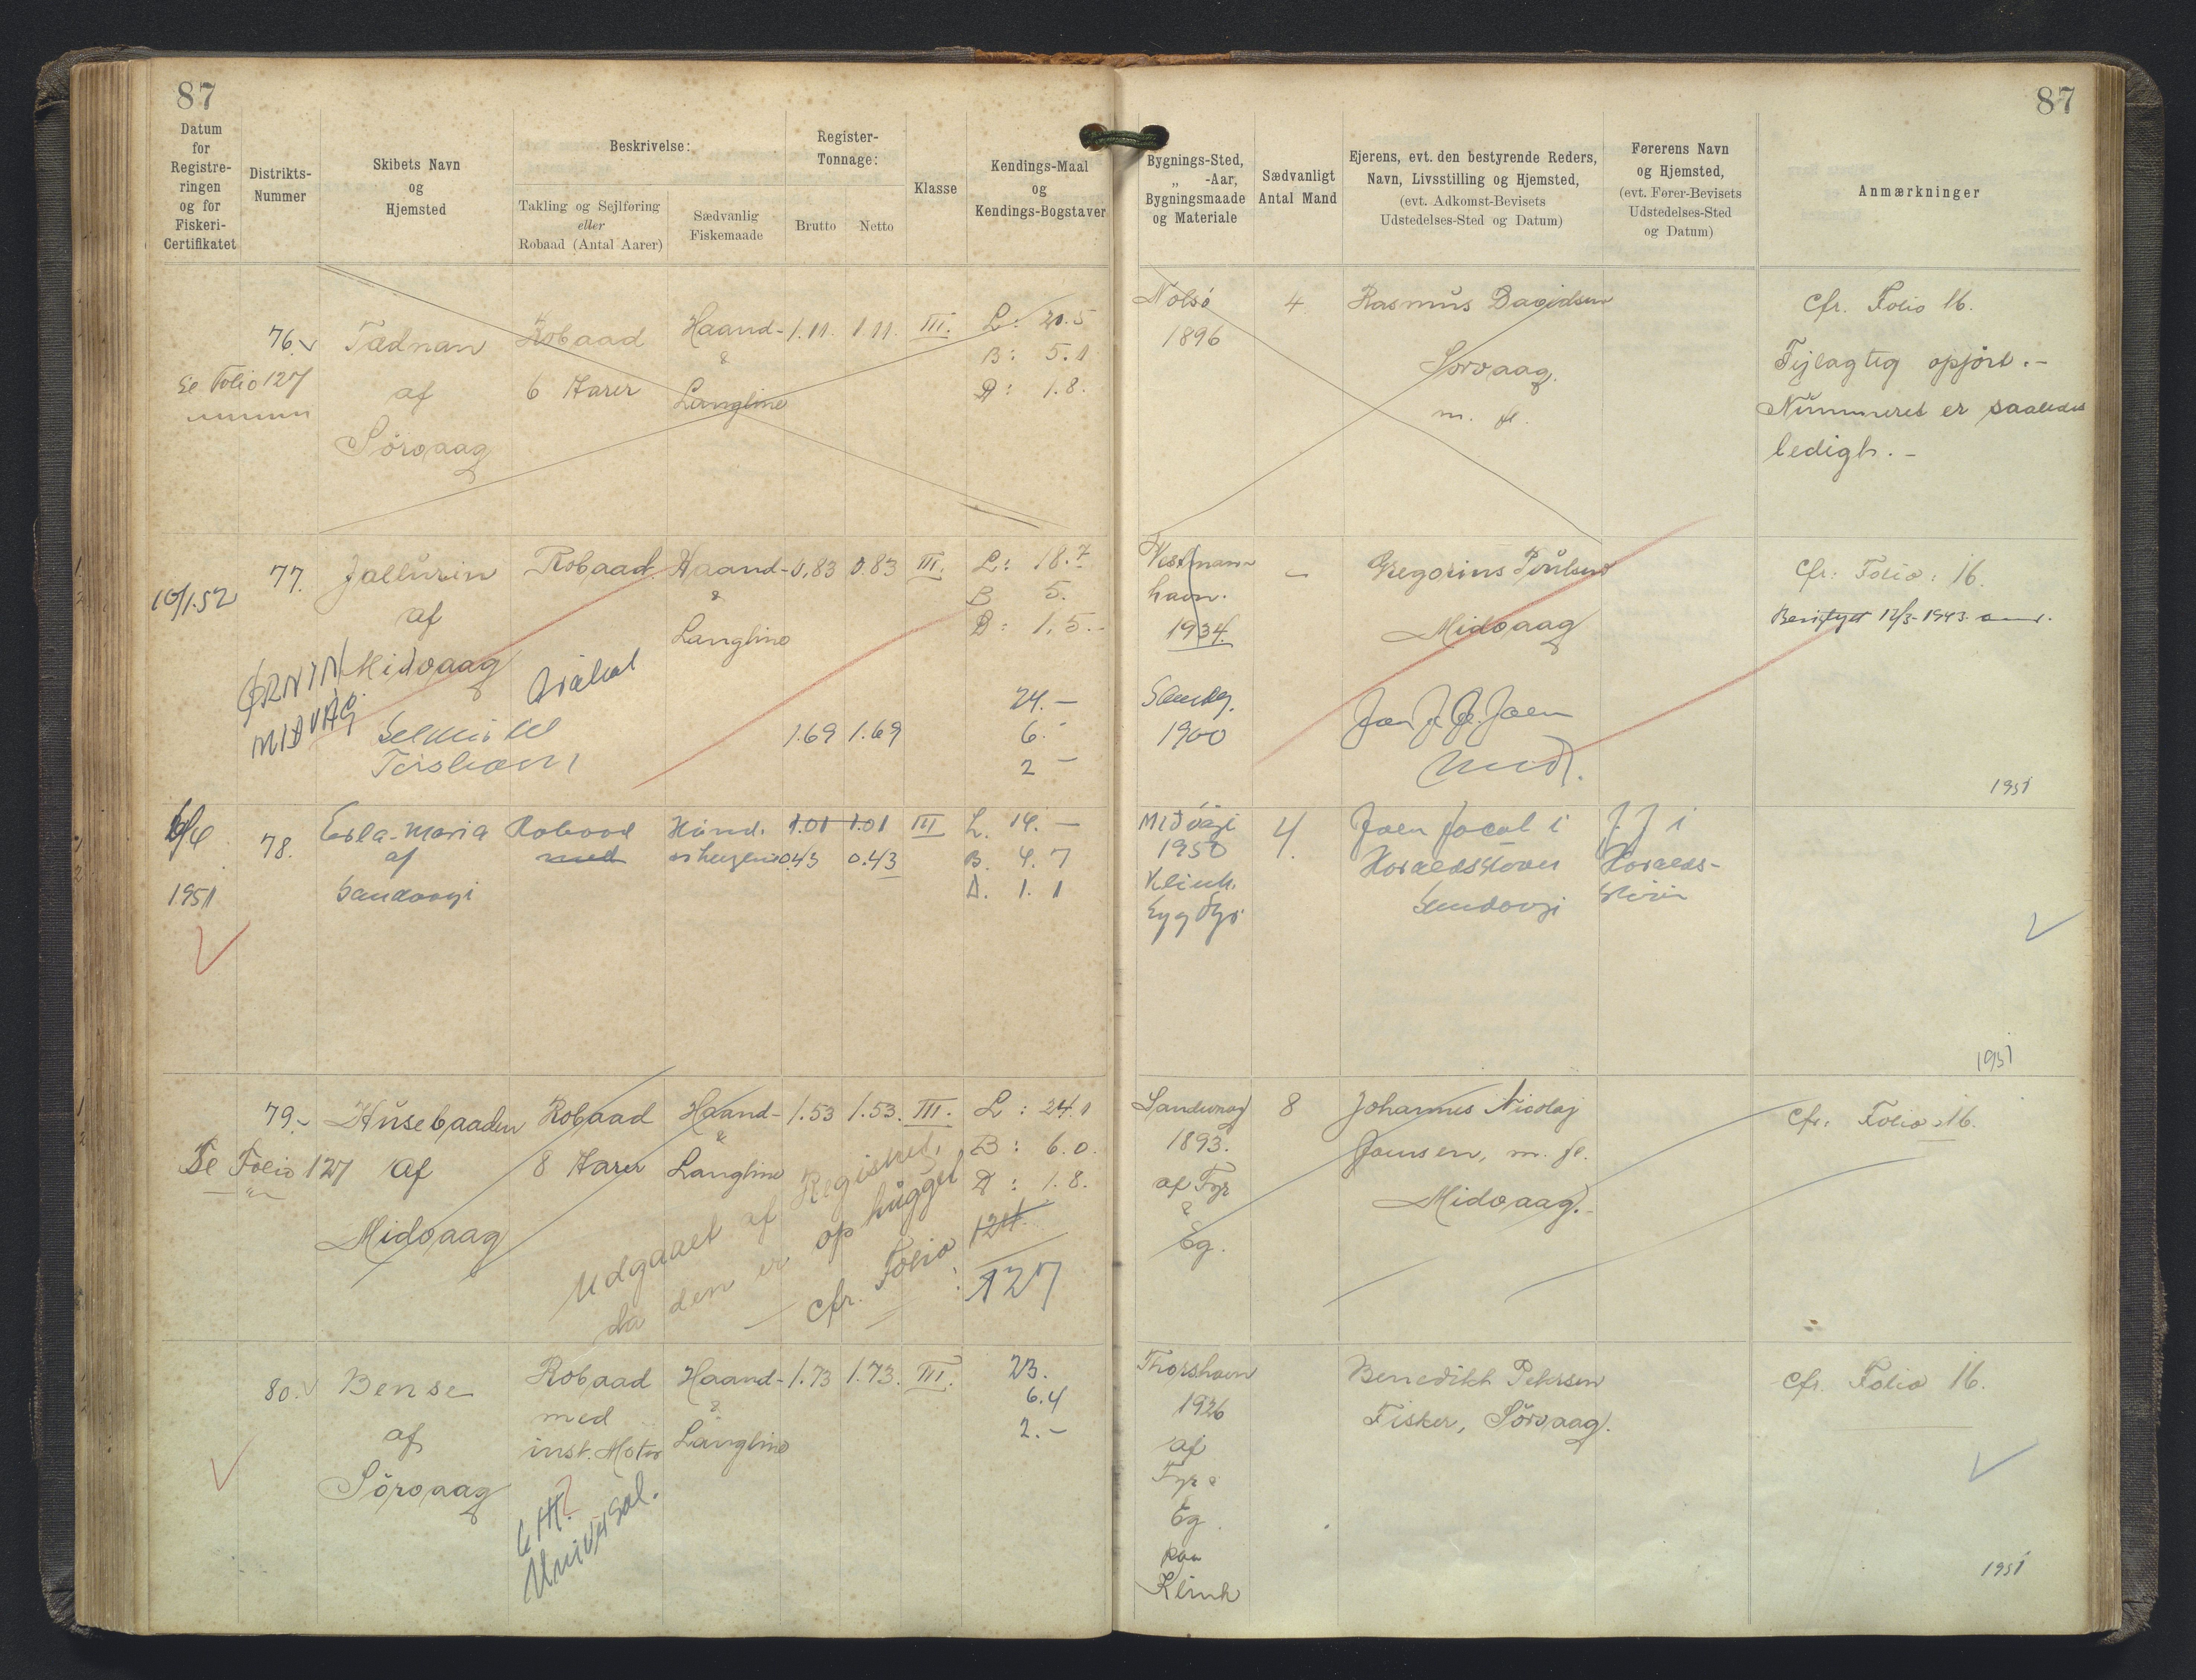 87
87
Datum
for
Registre-
ringen
og for
Fiskeri-
Certifikatet
Distrikts-
Nummer
Skibets Navn
og
Hjemsted
Beskrivelse:
Takling og Sejlføring
eller
Robaad (Antal Aarer)
Sædvanlig
Fiskemaade
Register-
Tonnage:
Brutto Netto
Klasse
Kendings-Maal
og
Kendings-Bogstaver
Bygnings-Sted,
„ -Aar,
Bygningsmaade
og Materiale
Sædvanligt
Antal Mand
Ejerens, evt. den bestyrende Reders,
Navn, Livsstilling og Hjemsted,
(evt. Adkomst-Bevisets
Udstedelses-Sted og Datum)
Førerens Navn
og Hjemsted,
(evt. Fører-Bevisets
Udstedelses-Sted
og Datum)
Anmærkninger
76.
Se Folio 127
Tædnan
af
Sörvaag
Robaad
6 Aarer
Haand-
&
Langline
1.11. 1.11. III.
L: 20.5
B: 5.1
D: 1.8.
Nolsö
1896
4
Rasmus Davidsen
Sorvaag.
m. fl.
Cfr. Folio 16.
Fejlagtig opført.-
Nummeret er saaledes
ledigt.-
10/1.52
77.
Jallurin
af
Midvaag
ØRNIN
MIÐVÁG
Tórshavn
Robaad.
Haand-
&
Langline
0,83 0.83 III.
L: 18.7
B 5.
D: 1,5.-
1.69 1.69
24.-
6.-
2 -
Vestman-
havn.
1934.
Sandv.
1900
-
Gregorius Poulsen
Midvaag
Cfr: Folio: 16.
12/3-1943.
1951
6/4
1951
78.
Esla-Maria
af
Sandavági
Robaad
med
Haand.
1.01 1.01 III
0.43 0.43
L. 14.-
B. 4.7
D. 1.1
Miðvági
1950
Klink.
Eg og Fyr
4.
Joen Jacob í
Haraldsstovu
Sandavági
J. J í
Haralds-
1951
79.
Se Folio 127
Husebaaden
af
Midvaag
Robaad
8 Aarer
Haand-
&
Langline
1.53 1.53. III.
L: 24.1
B: 6.0.
D: 1.8.
Udgaaet af Registret,
da den er ophugget
cfr. Folio 124
: 127
Sandevaag
1893.
af Fyr
&
Eg.
8
Johannes Nicolaj
Joensen, m. fl.
Midvaag.
Cfr: Folio 16.
80.
Bense
af
Sörvaag
Robaad
med
inst. Motor
Universal.
Haand-
&
Langline
1.73 1.73. III.
23.
6.4
2.-
Thorshavn
1926
af
Fyr &
Eg.
paa
Klink
Benedikt Petersen
Fisker, Sörvaag.
Cfr. Folio 16.
1951